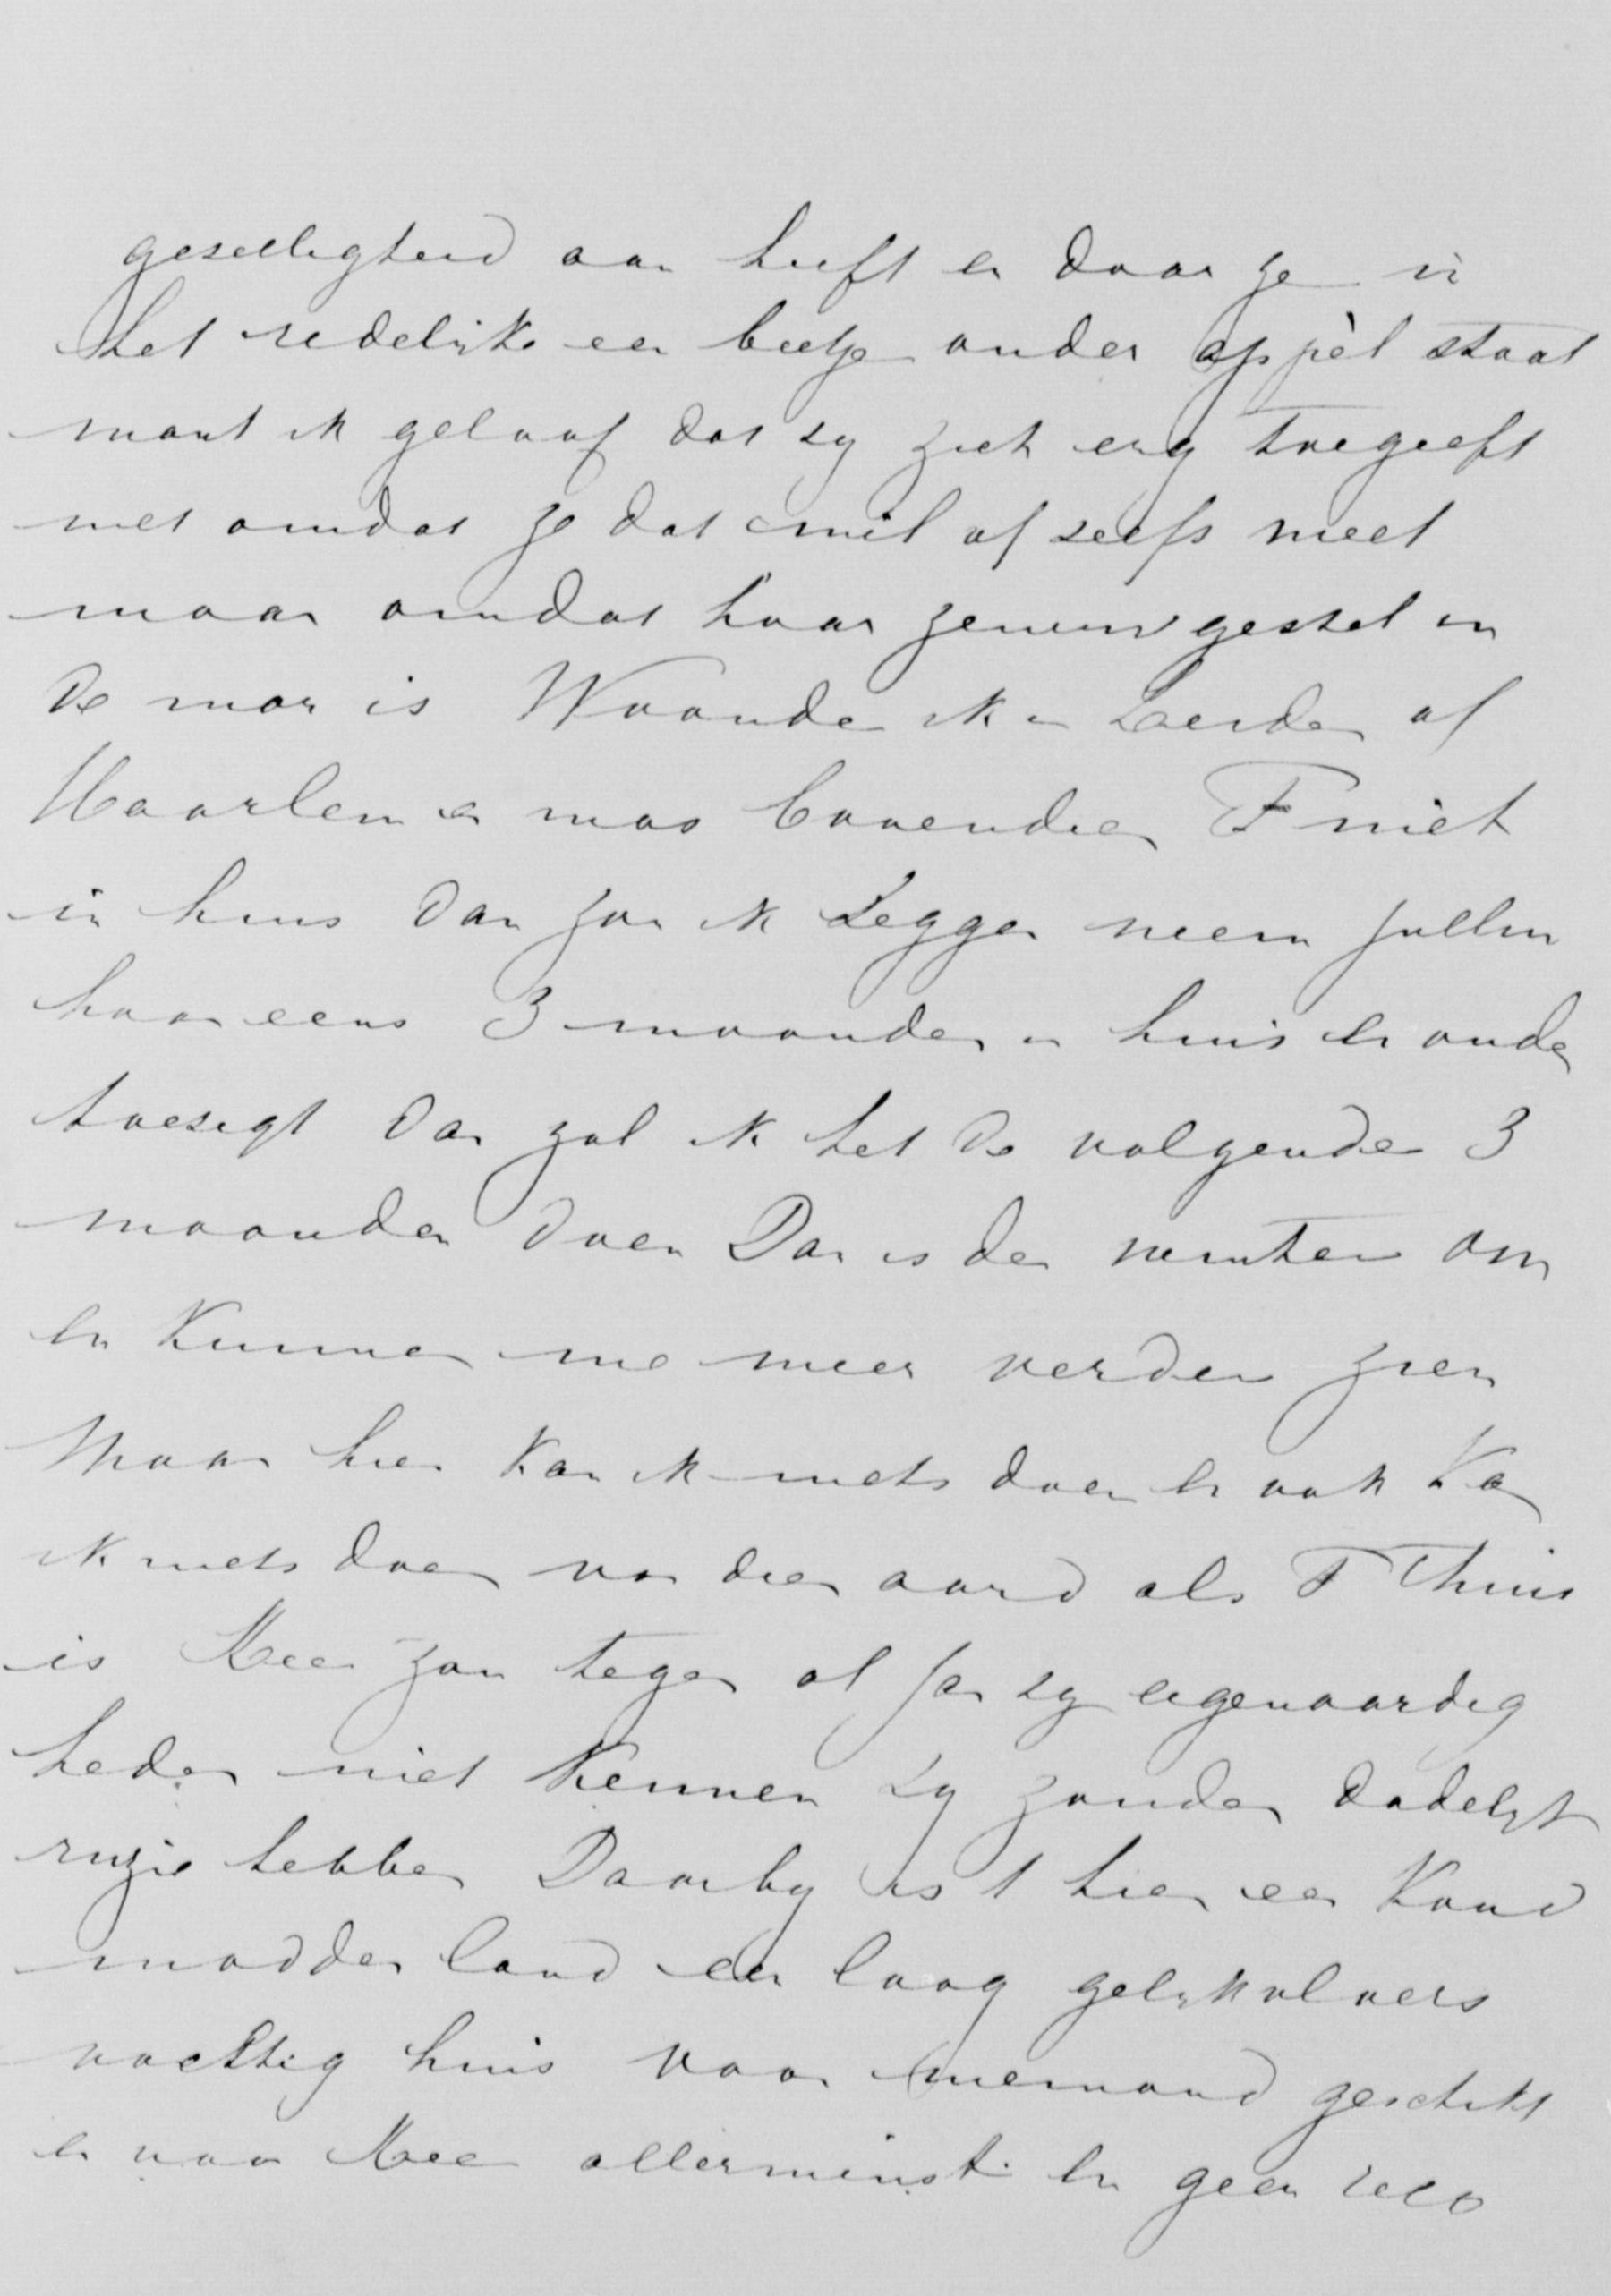 geselligheid aan heeft en daar ze in
het redelijke een beetje onder appèl staat
want ik geloof dat zy zich erg toegeeft
niet omdat ze dat wil of zelfs weet
maar omdat haar zenuwgestel in
de war is Woonde ik in Leiden of
Haarlem en was bovendien F niet
in huis dan zou ik zeggen neem jullie
haar eens 3 maanden in huis en onder
toezigt dan zal ik het de volgende 3
maanden doen Dan is de winter om
en kunnen we weer verder zien
Maar hier kan ik niets doen en ook kan
ik niets doen van dien aard als F thuis
is Kee zou tegen al zyn eigenaardig
heden niet kennen zy zouden dadelyk
ruzie hebben Daarby is 't hier een koud
modder land een laag gelykvloers
vochtig huis voor niemand geschikt
en voor Kee allerminst En geen